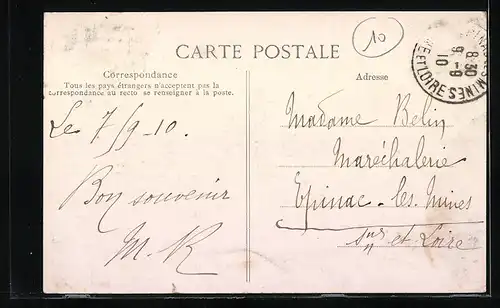 CARTE POSTALE
Correspondance
Tous les pays étrangers n'acceptent pas la
correspondance au recto se renseigner à la poste.
Le 7/9-10.
Bon souvenir
M. R
10
Adresse
Madame Belin
Maréchalerie
Epinac-les-Mines
et Loire
8 30
9 - 9
10
MINES
ET LOIRE